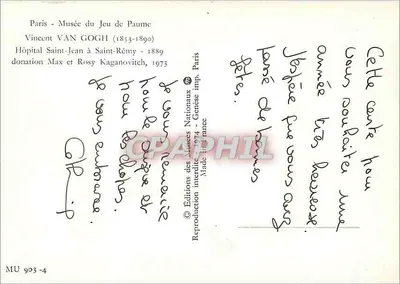 Paris - Musée du Jeu de Paume
Vincent VAN GOGH (1853-1890)
Hôpital Saint-Jean à Saint-Rémy - 1889
donation Max et Rosy Kaganovitch, 1973
Cette carte pour
vous souhaiter une
année très heureuse.
J'espère que vous avez
passé de bonnes
fêtes.
© Éditions des Musées Nationaux
Reproduction interdite - 1974 - Genèse imp. Paris
Made in France
je vous remercie
pour le chèque et
pour les
je vous embrasse.
CPAPHIL
MU 903 -4